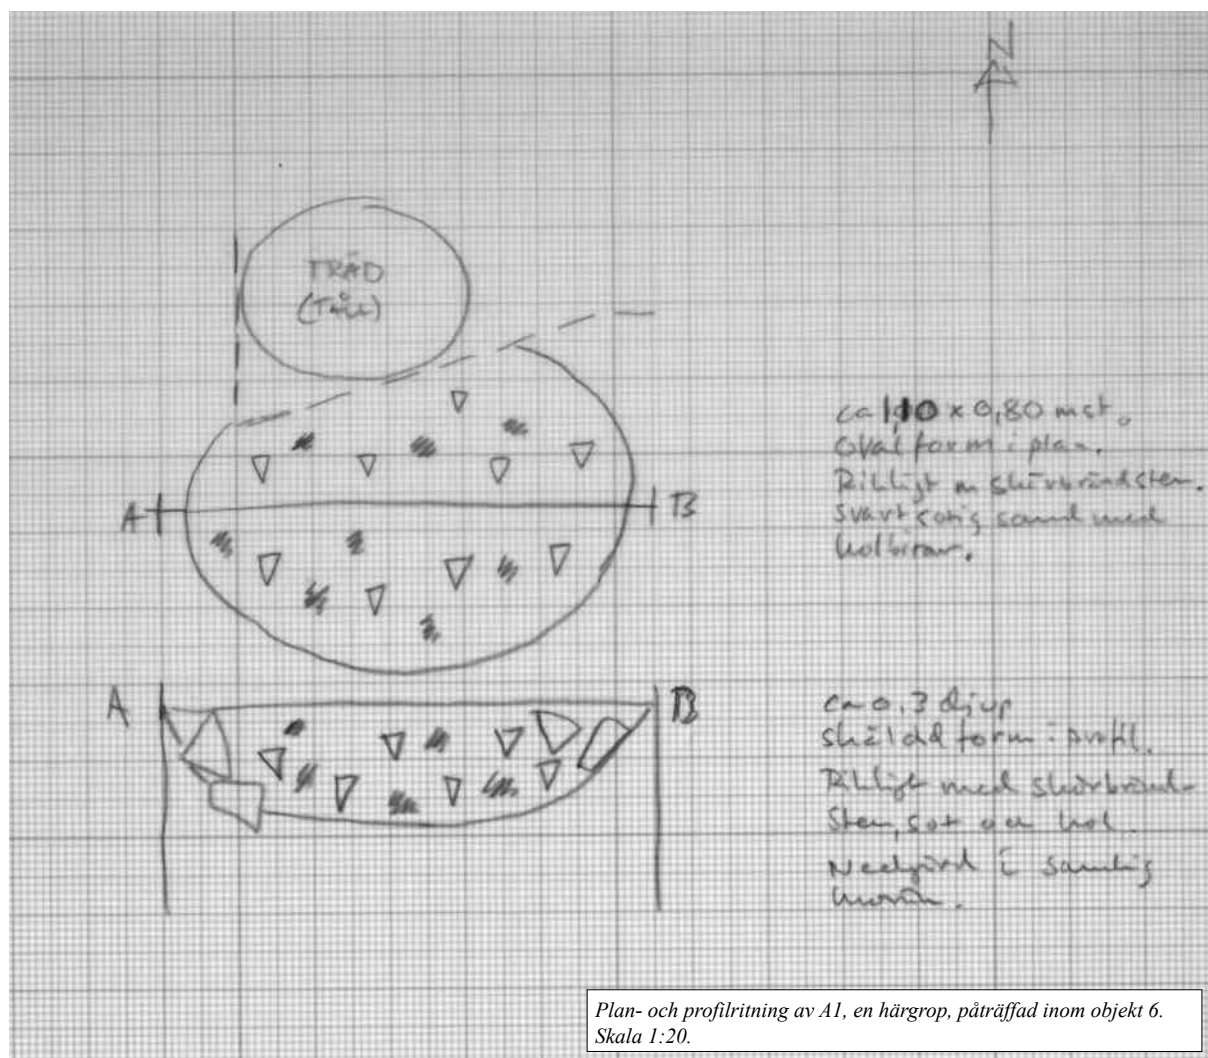 N
TRÄD
(TALL)
A
B
ca 1,10 x 0,80 m st.
Oval form i plan.
Rikligt m skörbränd sten.
Svart sotig sand med
kolbitar.
A
B
ca 0.3 djup
skålad form i profil.
Rikligt med skörbränd
sten, sot och kol.
Nedgrävd i sandig
morän.
Plan- och profilritning av A1, en härgrop, påträffad inom objekt 6.
Skala 1:20.